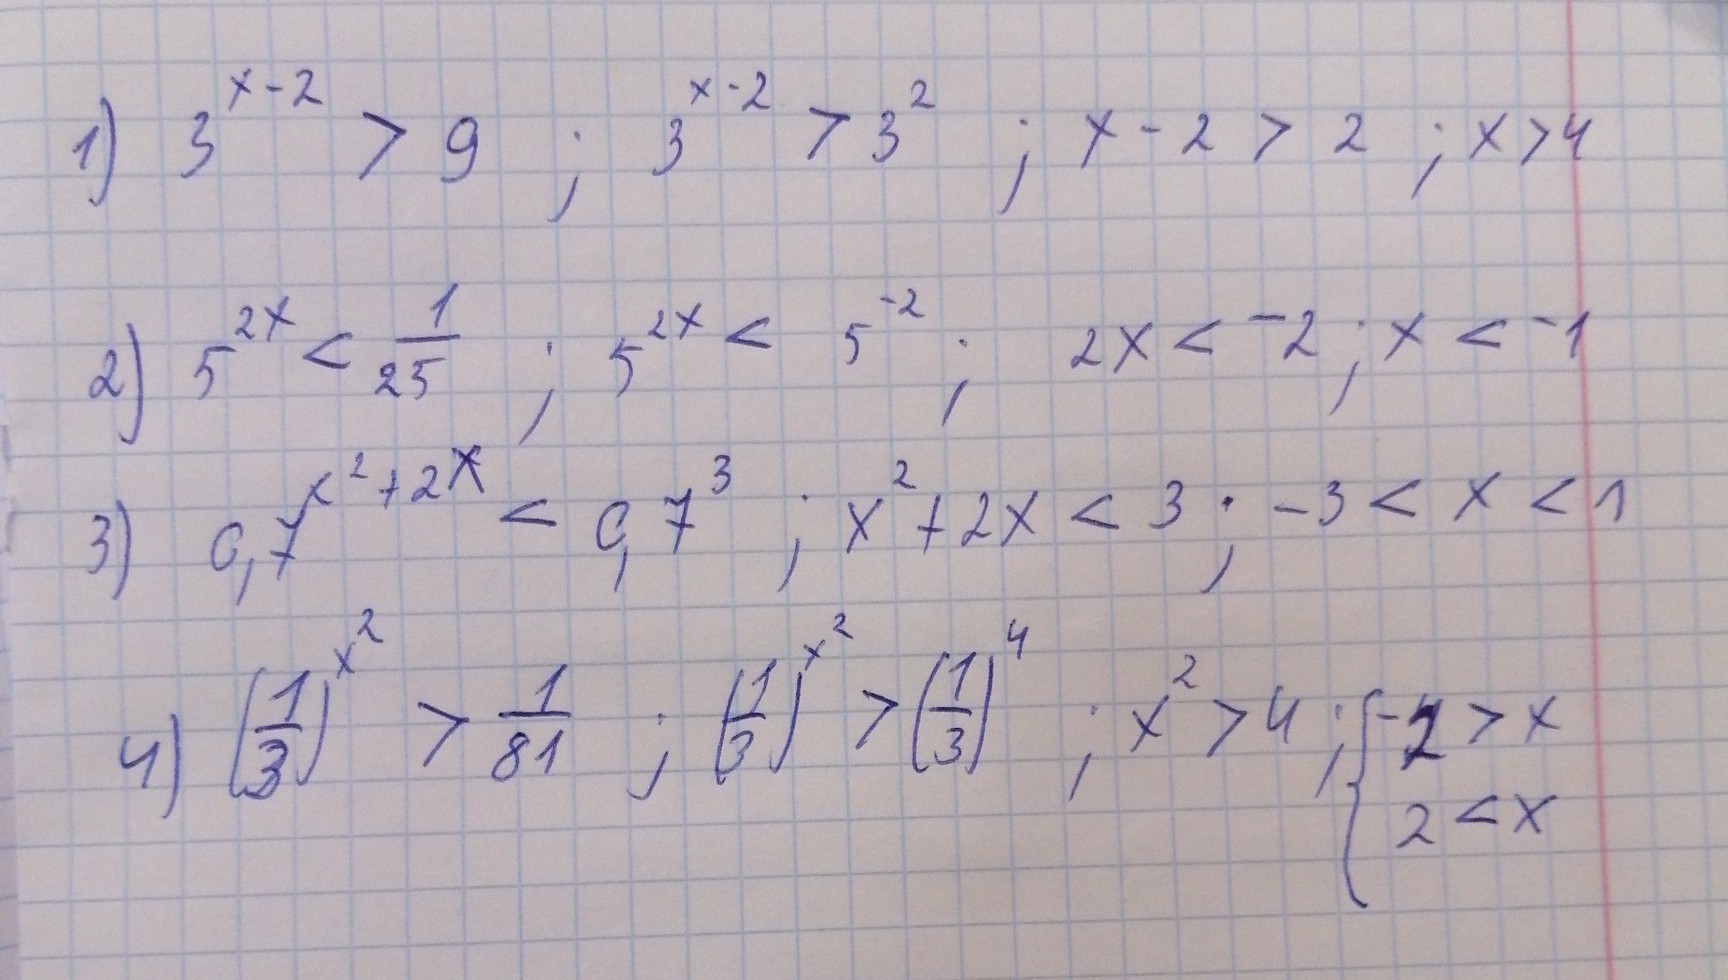 1) 3^(x-2) > 9 ; 3^(x-2) > 3^2 ; x - 2 > 2 ; x > 4
2) 5^(2x) < 1/25 ; 5^(2x) < 5^(-2) ; 2x < -2 ; x < -1
3) 0,7^(x^2+2x) < 0,7^3 ; x^2 + 2x < 3 ; -3 < x < 1
4) (1/3)^(x^2) > 1/81 ; (1/3)^(x^2) > (1/3)^4 ; x^2 > 4 ; { -2 > x
2 < x